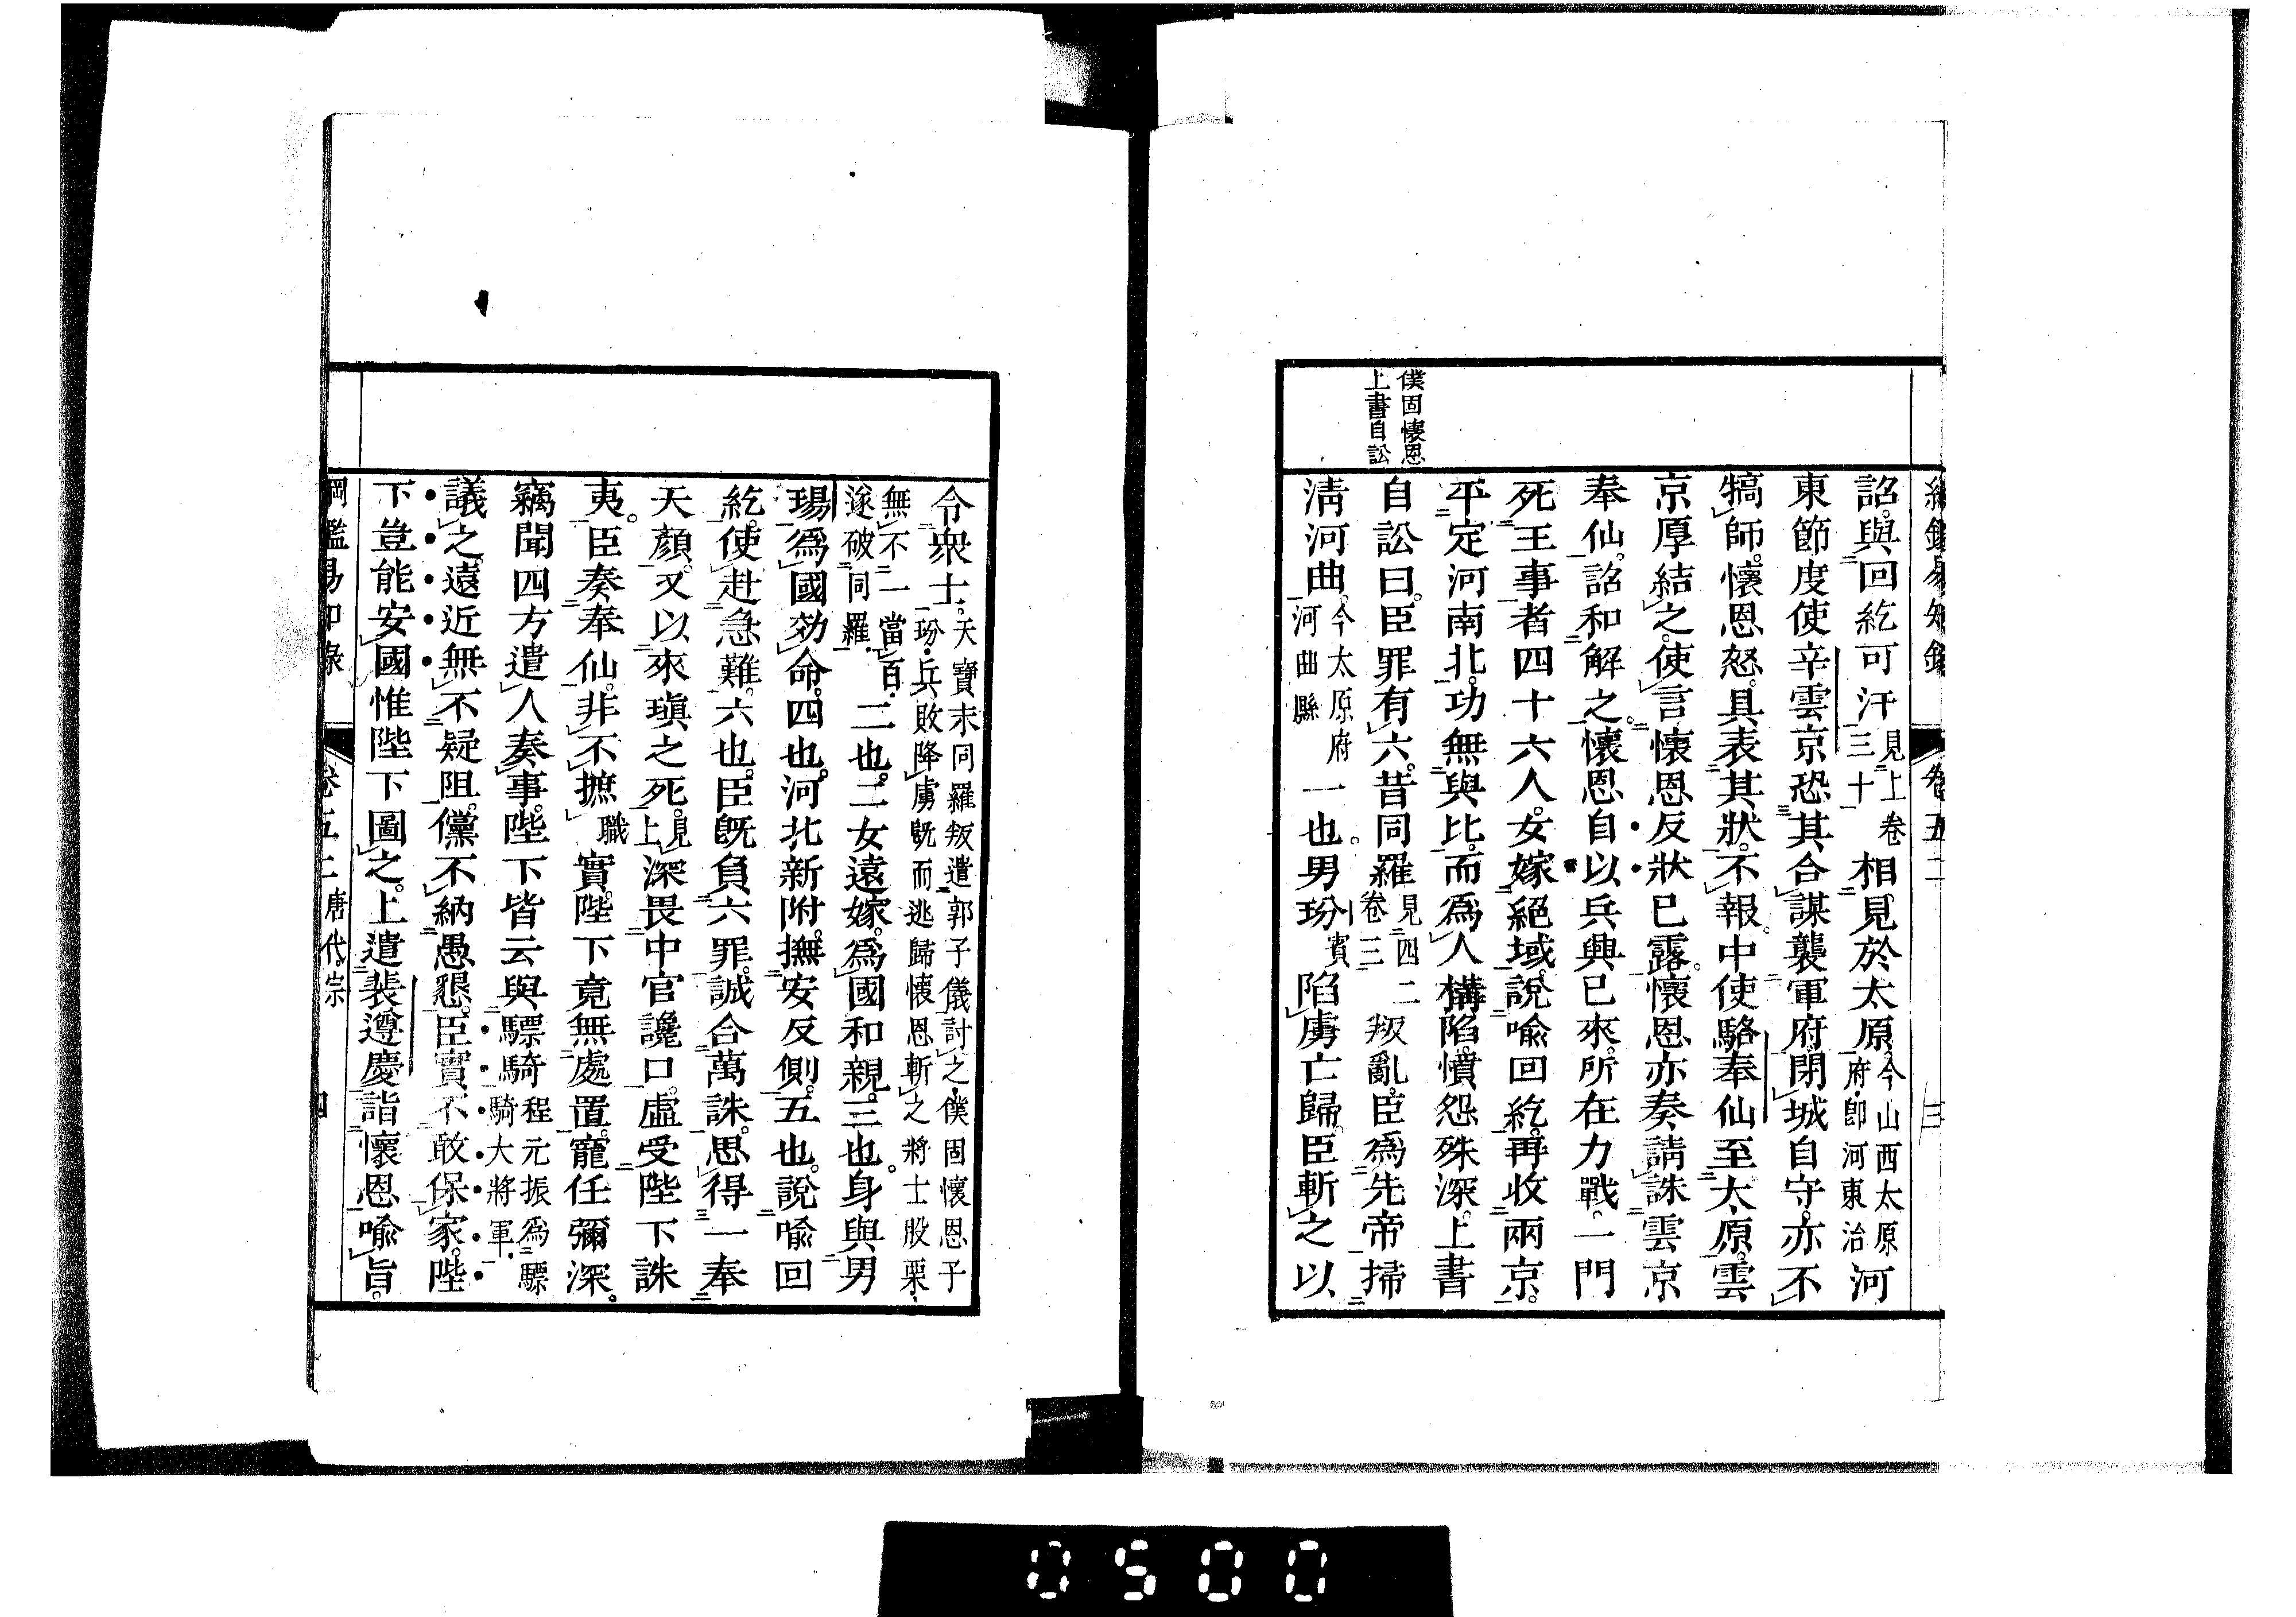 綱鑑易知錄 卷五二 三
僕固懷恩
上書自訟
詔與回紇可汗見上卷三十相見於太原今山西太原府即河東治河
東節度使辛雲京恐其合謀襲軍府閉城自守亦不
犒師懷恩怒具表其狀不報中使駱奉仙至太原雲
京厚結之使言懷恩反狀已露懷恩亦奏請誅雲京
奉仙詔和解之懷恩自以兵興已來所在力戰一門
死王事者四十六人女嫁絕域說喻回紇再收兩京
平定河南北功無與比而為人構陷憤怨殊深上書
自訟曰臣罪有六昔同羅見四二卷三叛亂臣為先帝掃
淸河曲今太原府河曲縣一也男玢賓陷虜亡歸臣斬之以
令衆士天寶末同羅叛遣郭子儀討之僕固懷恩子玢兵敗降虜既而逃歸懷恩斬之將士股栗
無不一當百遂破同羅二也二女遠嫁為國和親三也身與男
瑒為國効命四也河北新附撫安反側五也說喻回
紇使赴急難六也臣旣負六罪誠合萬誅思得一奉
天顏又以來瑱之死見上深畏中官讒口虛受陛下誅
夷臣奏奉仙非不摭職實陛下竟無處置寵任彌深
竊聞四方遣人奏事陛下皆云與驃騎程元振為驃騎大將軍
議之遠近無不疑阻儻不納愚懇臣實不敢保家陛
下豈能安國惟陛下圖之上遣裴遵慶詣懷恩喻旨
綱鑑易知錄 卷五二 唐代宗 四
0500